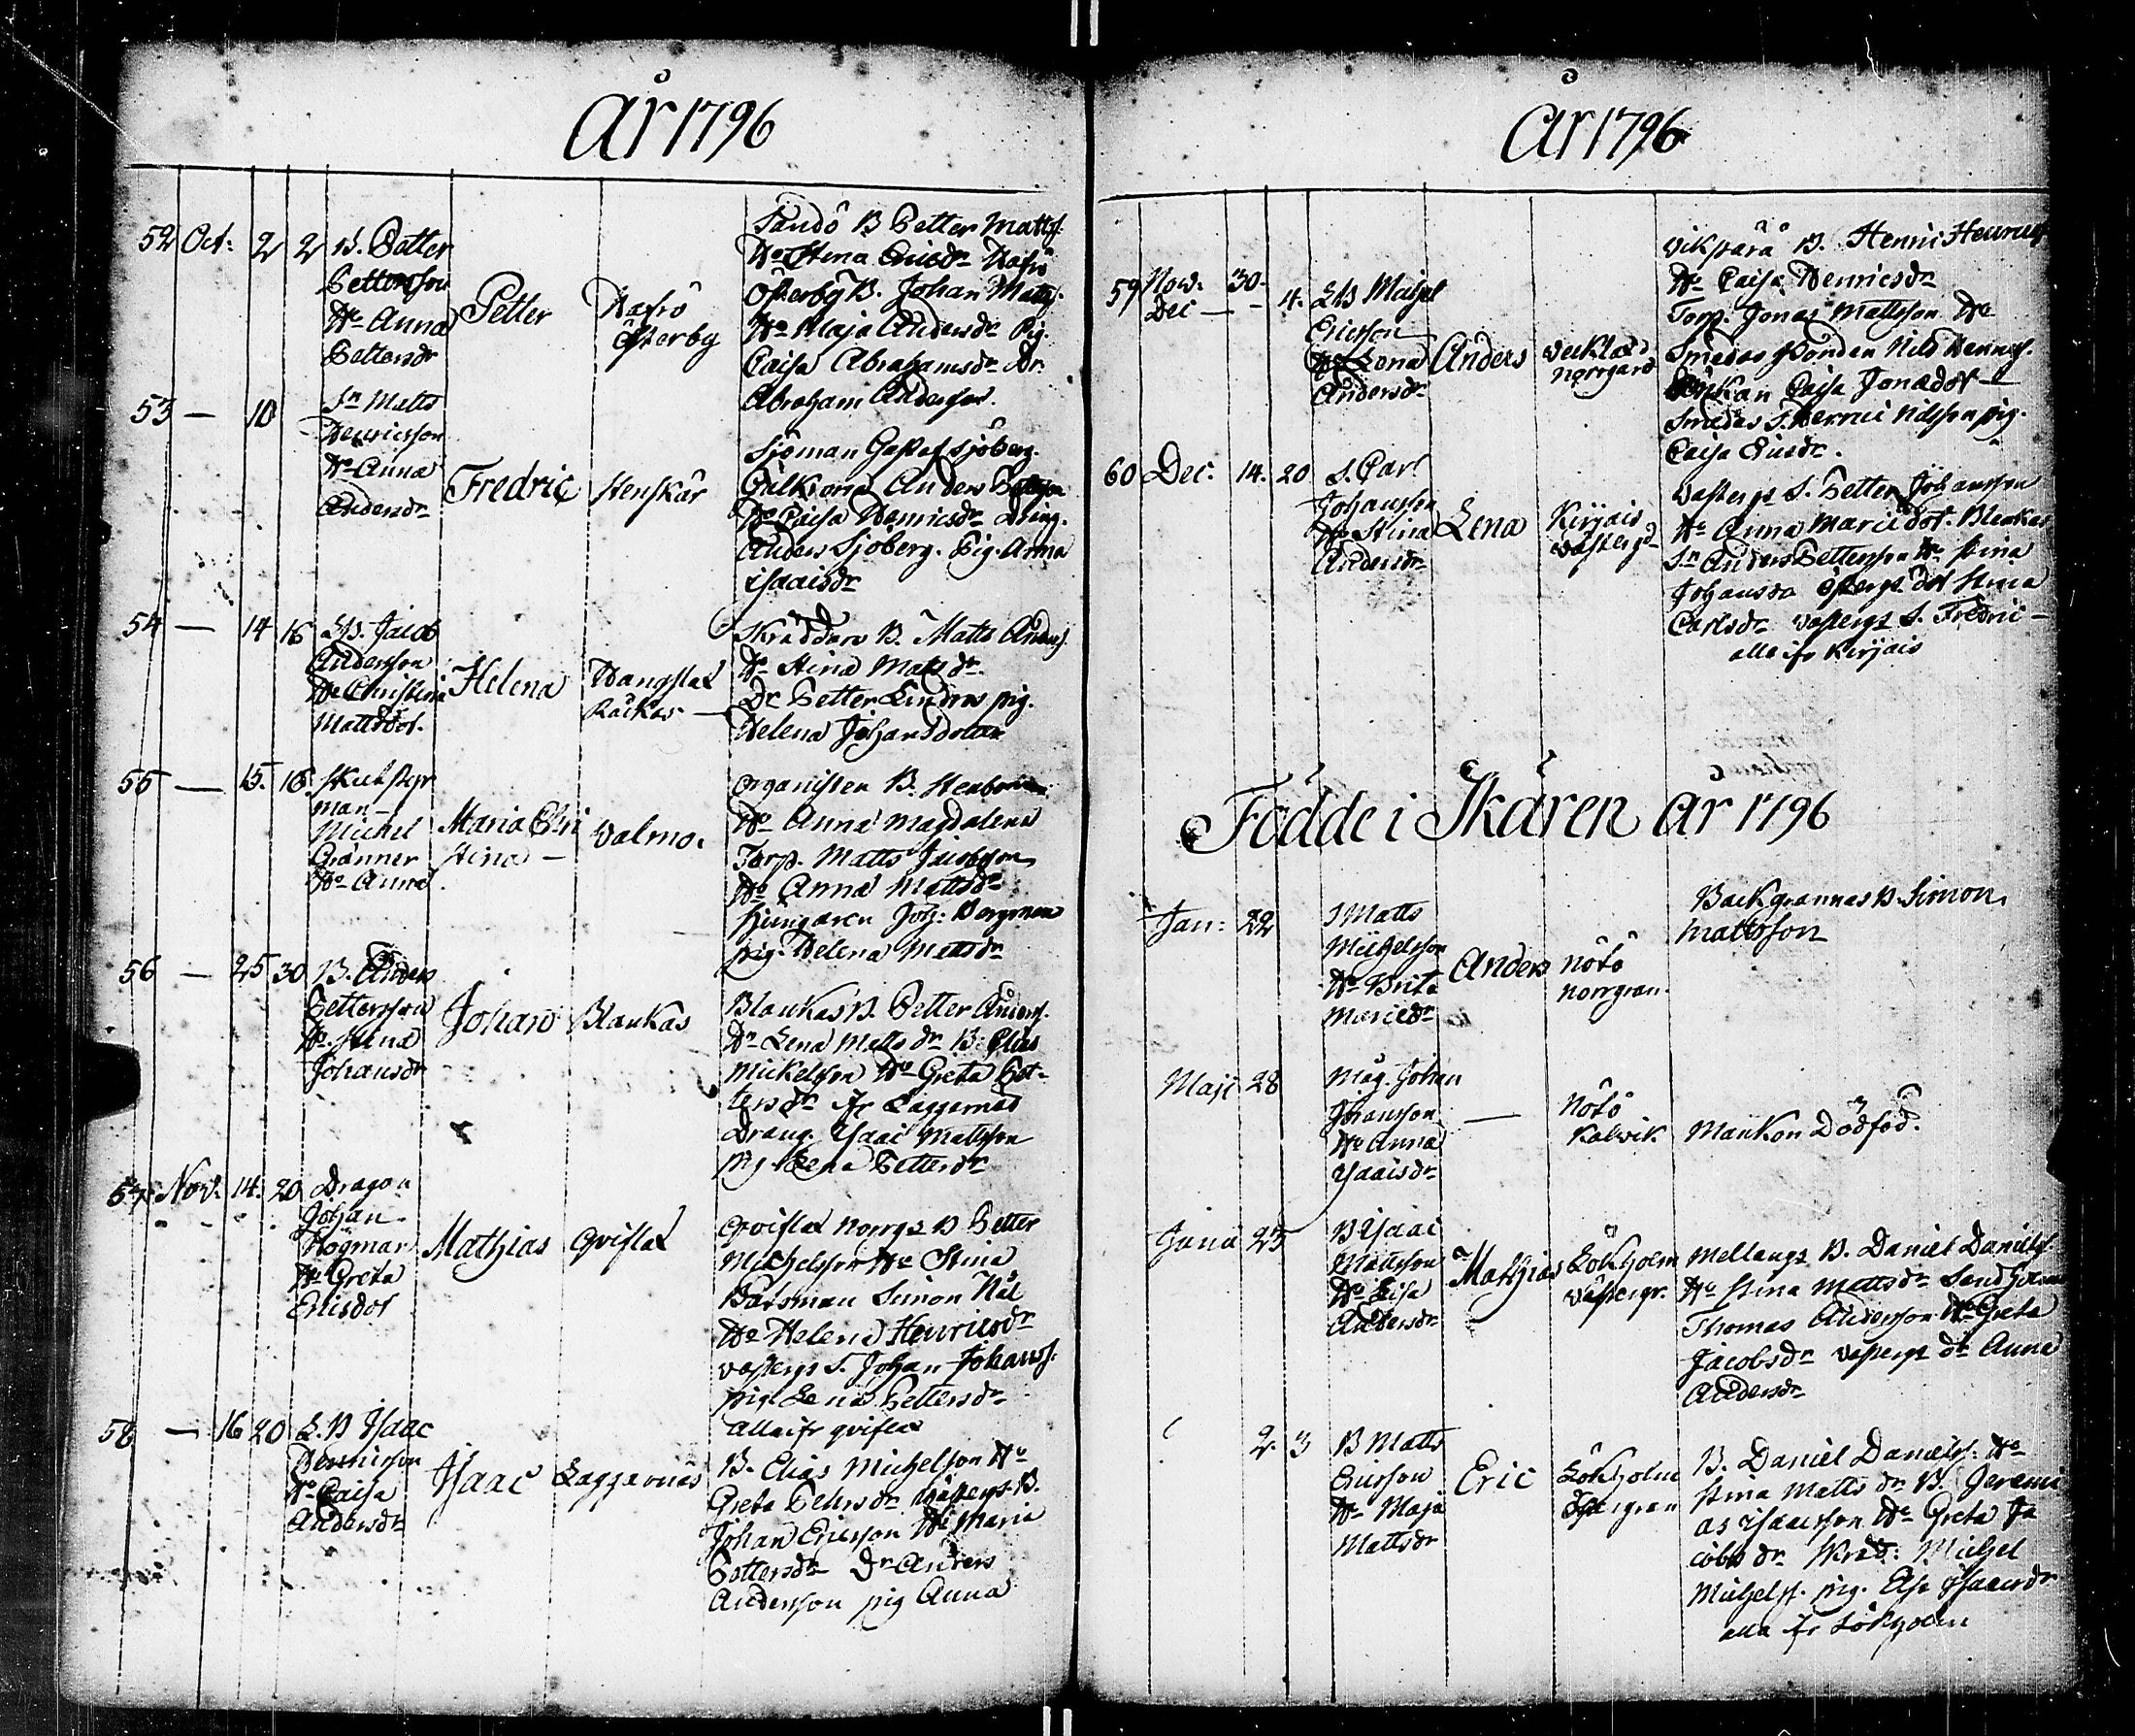 År 1796
52 Oct: 2 2 B. Petter
Pettersson
Hu Anna
Pettersdr
Petter
Hafrö
Österby
Sandö B Petter Mattss.
Hu Stina Ericsdr Hafrö
Österby B. Johan Mattss.
Hu Maja Andersdr Pig.
Caisa Abrahamsdr Dr.
Abraham Andersson.
53 — 10
Sn Matts
Henricsson
Hu Anna
Andersdr
Fredric
Stenskär
Sjöman Gustaf Sjöberg.
Anders
Hu Caisa Henricsdr Dräng.
Anders Sjöberg. Pig. Anna
Isaacsdr
54 — 14 16 LB. Jacob
Andersson
Hu Christina
Mattsdot.
Helena
Wangslax
Räckas —
Skräddare B. Matts Anderss.
Hu Stina Matsdr
Dr Petter Lindros pig.
Helena Johansdotter
55 — 15. 16. Skutstyr
man —
Michel
Grönner
Hu Anna.
Maria Chri
stina —
Walmo.
Organisten B. Stenborn
Hu Anna Magdalena
Torp. Matts Jacobsson
Hu Anna Mattsdr
Joh: Bergman
pig. Helena Mattsdr
56 — 25 30 B. Anders
Pettersson
Hu Stina
Johansdr
Johan
Blankas
Blankas B. Petter Anderss.
Hu Lena Mattsdr B. Elias
Mickelsson Hu Greta Pet-
tersdr fr Laggarnäs
Dräng. Isaac Mattsson
pig Lena Pettersdr
57 Nov. 14. 20 Dragon
Johan
Högman
Hu Greta
Ericsdot
Mathias
Qviflax
Qviflax Norrgs B Petter
Michelsson Hu Stina
Båtsman Simon Nål
Hu Helena Henricsdr
Västergs S. Johan Johanss.
pig. Lena Pettersdr
alla ifr Qviflax
58 — 16 20 L.B Isaac
Henricsson
Hu Caisa
Andersdr
Isaac
Laggarnäs
B. Elias Michelsson Hu
Greta Pettersdr Västergs B.
Johan Ericsson Hu Maria
Pettersdr Dr Anders
Andersson pig Anna
År 1796
59 Nov. 30.
Dec — - 4. LB Michel
Ericsson
Hu Lena
Andersdr
Anders
Wecklax
Norrgård
Vikstarå B. Henric Henricss
Hu Caisa Henricsdr
Torp. Jonas Mattsson Hu
Smedas Bonden Nils Henricss.
Enkan Caisa Jonædot —
Smedas S. Henric Nilsson pig.
Caisa Ericsdr.
60 Dec. 14. 20 S. Carl
Johansson
Hu Stina
Andersdr
Lena
Kirjais
Västergd
Västergs S. Petter Johansson
Hu Anna Mariedot. Blankas
Sn Anders Pettersson Hu Stina
Johansdr Östergs dot Stina
Carlsdr Västergs S. Fredric —
alla ifr Kirjais
Födde i Skären år 1796
Jan: 22
S Matts
Michelsson
Hu Brita
Mariedr
Anders
Nötö
Norrgran.
Backgrannas B. Simon
Mattsson
Maji 28
Måg. Johan
Johansson
Hu Anna
Isaacsdr
—
Nötö
Kalvik
Mankön Dödföd.
Junii 25
B Isaac
Mattsson
Hu Lisa
Andersdr
Mathias
Lökholm
Västergr.
Mellangs B. Daniel Danielss.
Hu Stina Mattsdr Sandholm
Thomas Andersson Hu Greta
Jacobsdr Västergs dr Anna
Andersdr
2. 3 B Matts
Ericsson
Hu Maja
Mattsdr
Eric
Lökholm
Östergran
B. Daniel Danielss. Hu
Stina Mattsdr B. Jeremi
as Isaacsson Hu Greta Ja
cobsdr Skräd: Michel
Michelss. pig. Lisa Isaacsdr
alla fr Lökholm